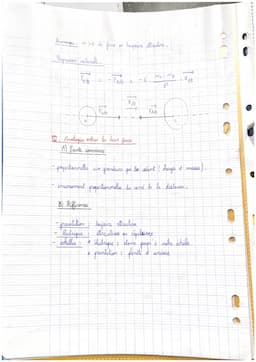 Remarque : la force est toujours attractive.
Expression vectorielle :
F A/B = - F B/A = - G · m A · m B / d² · u AB
u AB
F B/A F A/B
II. Analogie entre les deux forces
A) Points communs
- proportionnelles aux grandeurs qui les créent (charges et masses).
- inversement proportionnelles au carré de la distance.
B) Différences
- gravitation : toujours attractive
- électrique : attractive ou répulsive
- échelles : * électrique : atome jusqu'à notre échelle
* gravitation : planète et univers